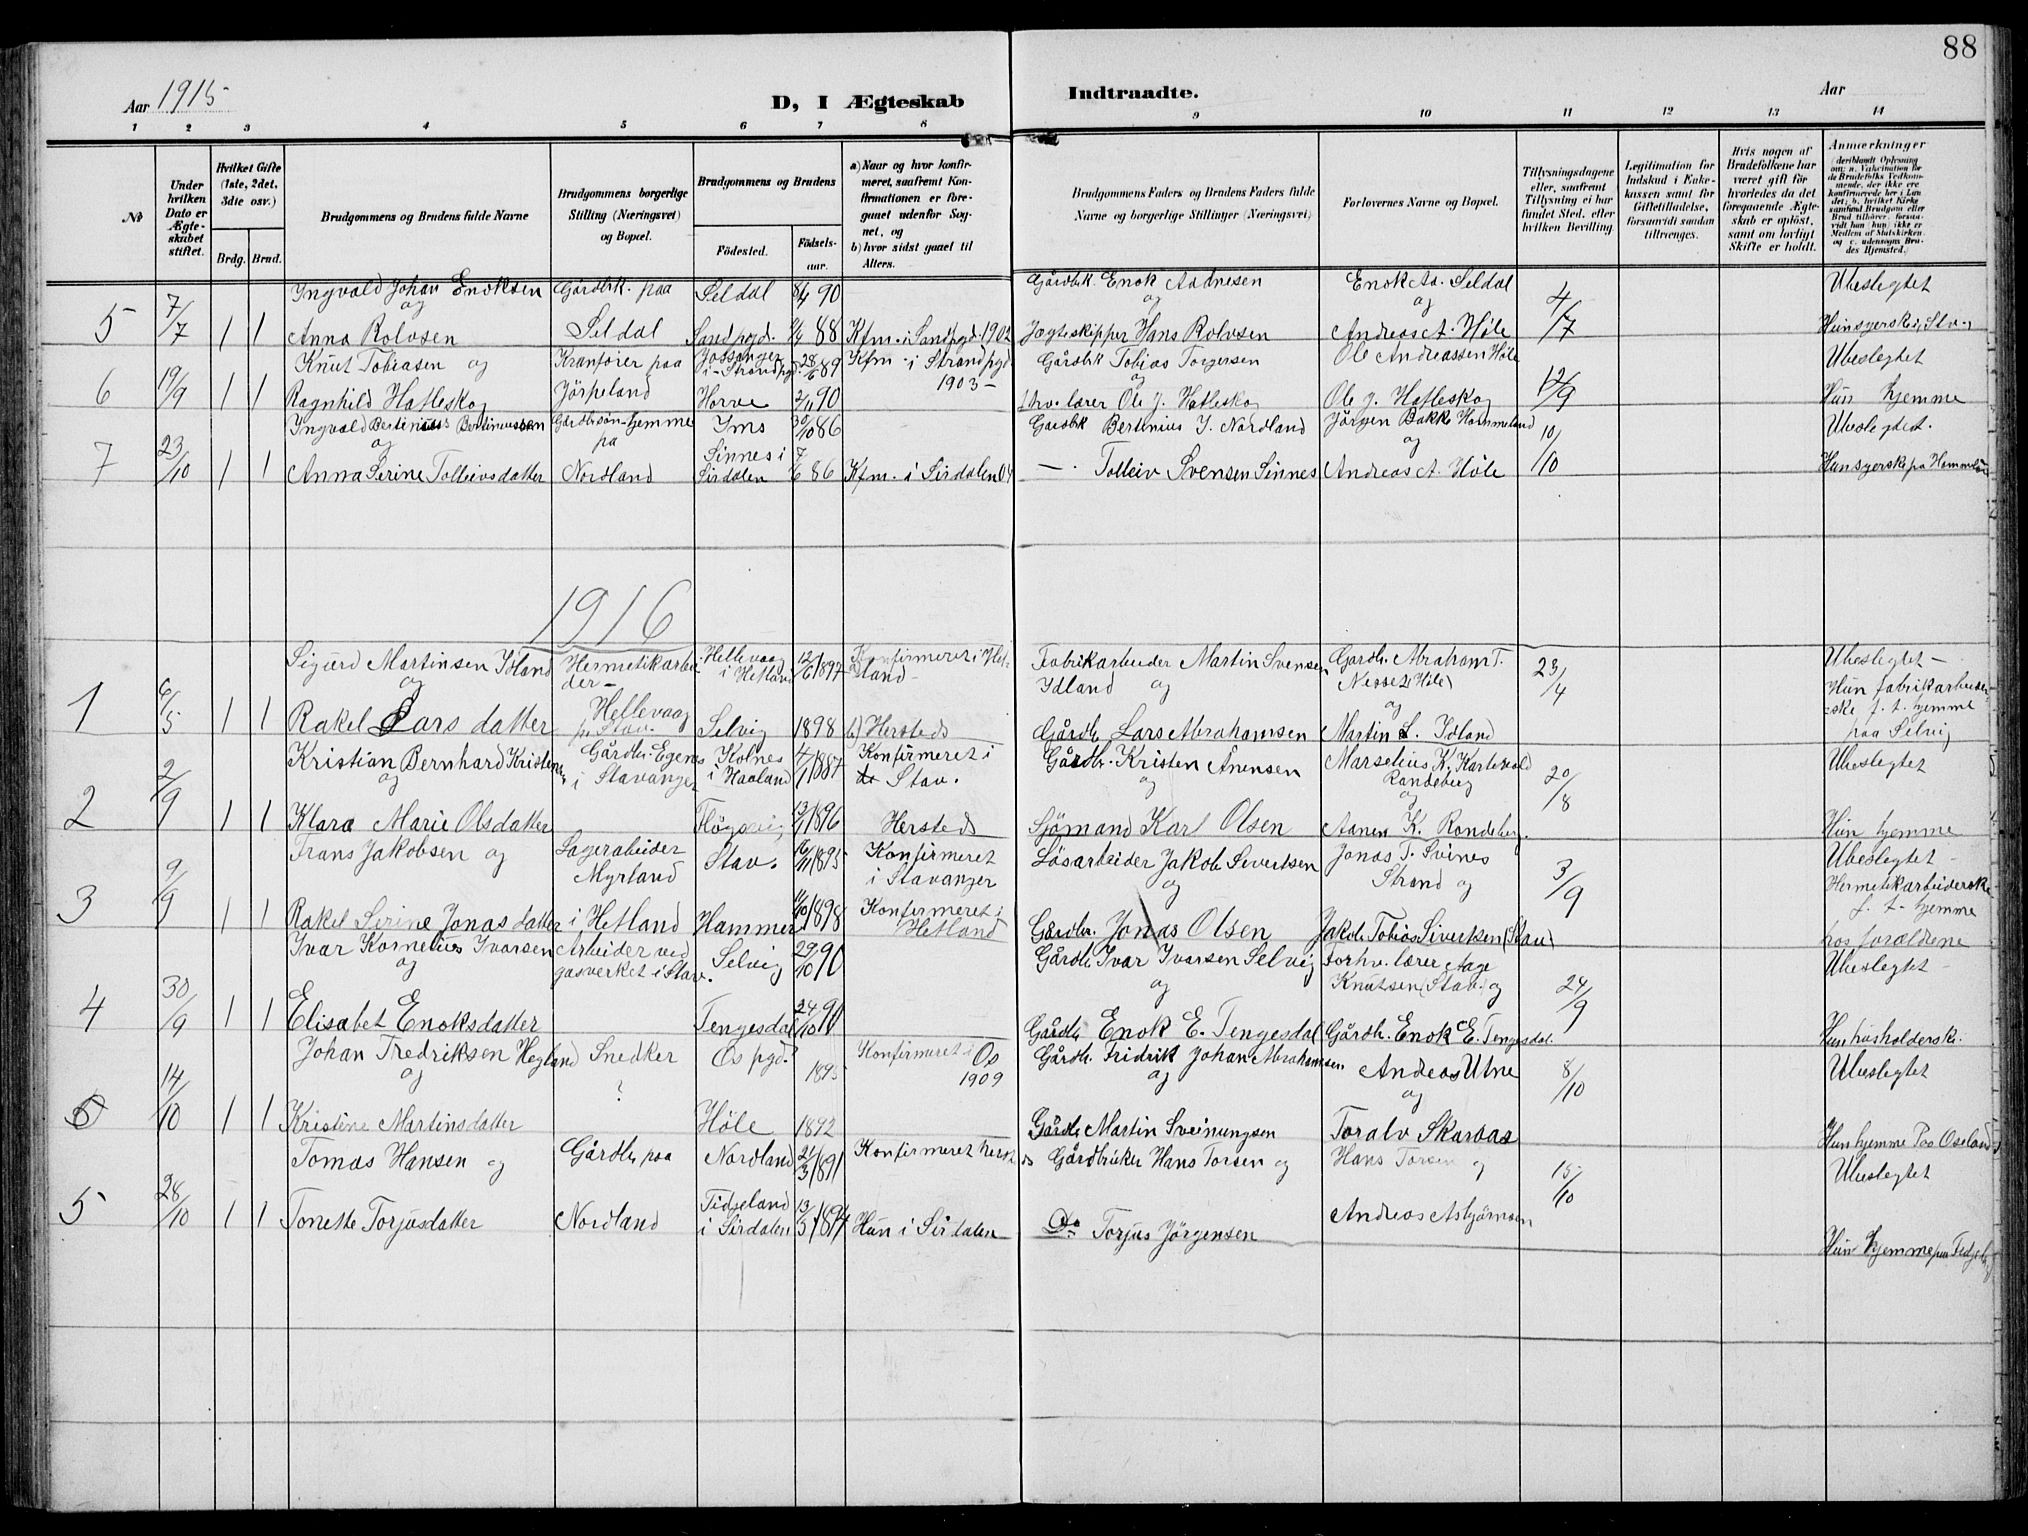 88
Aar 1915
D, I Ægteskab Indtraadte.
Aar
1 2 3 4 5 6 7 8 9 10 11 12 13 14
№
Under hvilken Dato er Ægteskabet stiftet.
Hvilket Gifte (1ste, 2det, 3die osv.)
Brdg. Brud.
Brudgommens og Brudens fulde Navne
Brudgommens borgerlige Stilling (Næringsvei) og Bopæl.
Brudgommens og Brudens
Fødested. Fødselsaar.
a) Naar og hvor konfirmeret, saafremt Konfirmationen er foregaaet udenfor Sognet, og
b) hvor sidst gaaet til Alters.
Brudgommens Faders og Brudens Faders fulde Navne og borgerlige Stillinger (Næringsvei)
Forlovernes Navne og Bopæl.
Tillysningsdagene eller, saafremt Tillysning ei har fundet Sted, efter hvilken Bevilling.
Legitimation for Indskud i Enkekassen samt for Giftetilladelse, forsaavidt saadan tiltrænges.
Hvis nogen af Brudefolkene har været gift før hvorledes da det foregaaende Ægteskab er opløst, samt om lovligt Skifte er holdt.
Anmærkninger (deriblandt Oplysning om: a. Vakcination for de Brudefolks Vedkommende, der ikke ere konfirmerede her i Landet; b. hvilket Kirkesamfund Brudgom eller Brud tilhører, forsaavidt han, hun, ikke er Medlem af Statskirken og c. udensogns Brudes Hjemsted.
Ingvald Johan Enoksen Gårdbk. paa Seldal 8/4 90 Gårdbk. Enok Aadnesen Enok Aa. Seldal Ubeslegtet
5 7/7 1 1 og og og 4/7
Anna Rolvsen Seldal Sand pgd. 88 Kfm. i Sand pgd. 1902 Jægteskipper Hans Rolvsen Andreas A. Høle
Knut Tobiasen og Kranfører paa Jøssanger i Strand pgd. 28/6 89 Kfm. i Strand pgd. 1903 - Gårdbk Tobias Torgersen Ole Andreassen Høle Ubeslegtet
6 19/9 1 1 og 12/9
Ragnhild Hatleskog Jörpeland Horve 2/11 90 lærer Ole J. Hatleskog Ole J. Hatleskog Hun hjemme
Ingvald Bertinius Bertinussen Gårdbr.søn hjemme Ims 30/10 86 Gårdbk Bertinius I. Nordland Jörgen Bakke Hommeland Ubeslegtet.
7 23/10 1 1 og paa og 10/10
Anna Serine Tolleivsdatter Nordland Sinnes i Sirdalen 7/6 86 Kfm. i Sirdalen 04 —. Tolleiv Svensen Sinnes Andreas A. Høle
1916
Sigurd Martinsen Idland Hermetikarbeider - Hellevaag i Hetland 12/6 1897 Konfirmeret i Hetland - Fabrikarbeider Martin Svensen Idland og Gardb. Abraham T. Nesset (Høle) Ubeslegtet -
1 6/5 1 1 og og 23/4 Hun fabrikarbeiderske f. t. hjemme paa Selvig
Rakel Lars datter Hellevaag pr Stav. Selvig 1898 b) Hersteds Gårdb. Lars Abrahamsen Martin L. Idland
Kristian Bernhard Kristensen Gårdb. Egenes i Stavanger Kolnes i Haaland 4/1 1887 Konfirmeret i Stav. Gårdbr. Kristen Anensen Marselius K. Randeberg Ubeslegtet
2 2/9 1 1 og og og 20/8
Klara Marie Olsdatter Fløgsvig 13/1 1896 Hersteds Sjömand Karl Olsen Aanen K. Randeberg. Hun hjemme
Frans Jakobsen og Lagerabeider Myrland Stav. 16/11 1895 Konfirmeret i Stavanger Løsarbeider Jakob Sivertsen og Jonas T. Svines Strand og Ubeslegtet -
3 9/9 1 1 3/9 Hermetikarbeiderske f. t. hjemme hos forældrene
Rakel Serine Jonas datter i Hetland Hammer 11/10 1898 Konfirmeret i Hetland Gårdbr. Jonas Olsen Jakob Tobias Sivertsen (Stav)
Ivar Kornelius Ivarsen Arbeider ved gasverket i Stav. Selvig 29/10 90 Gårdb Ivar Ivarsen Selvig Forhv. lærer Aage Knutsen (Stav.) og Ubeslegtet -
4 30/9 1 1 og og 24/9
Elisabet Enoksdatter Tengesdal 24/10 90 Gårdb Enok E. Tengesdal Gårdb. Enok E. Tengesdal. Hun husholderske.
Johan Fredriksen Hegland Snedker Os pgd. 1895 Konfirmeret i Os 1909 Gårdb. Fridrik Johan Abrahamsen Andreas Utne Ubeslegtet
14/10 1 1 og ? og og 8/10
Kristine Martinsdatter Høle 1892 Gårdb Martin Sveinungsen Toralv Skarvas Hun hjemme Paa Oseland
Tomas Hansen og Gårdb. paa Nordland 21/3 1891 Konfirmeret hersteds Gårdbruker Hans Torsen og Hans Torsen og Ubeslegtet
5 28/10 1 1 15/10
Tonette Torjusdatter Nordland Tidjeland i Sirdalen 13/3 1894 Hun i Sirdalen Do Torjus Jørgensen Andreas Asbjørnsen Hun hjemme paa